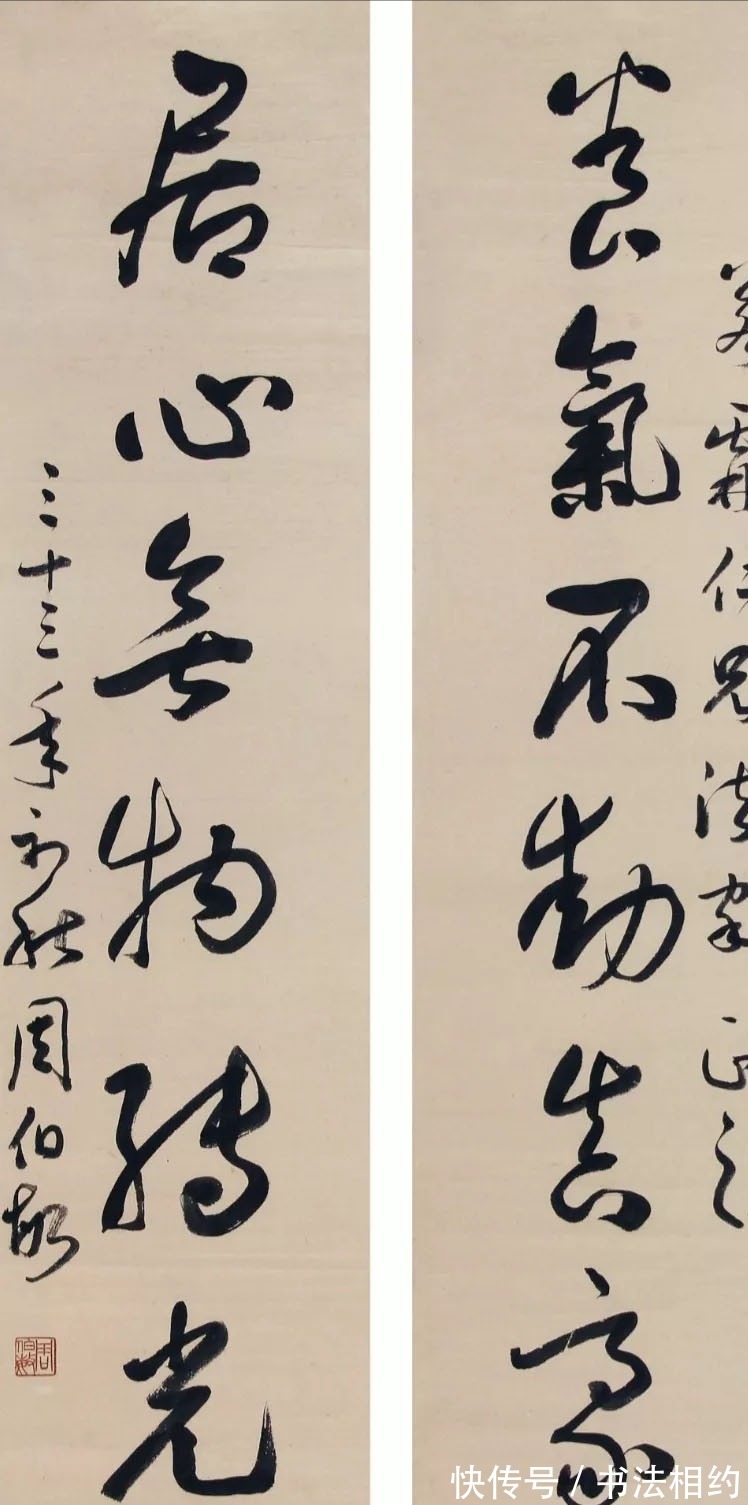 仁兄法家正之
養氣不動真豪
居心無物轉光
三十三年初秋周伯敏
周伯敏
快传号 / 书法相约